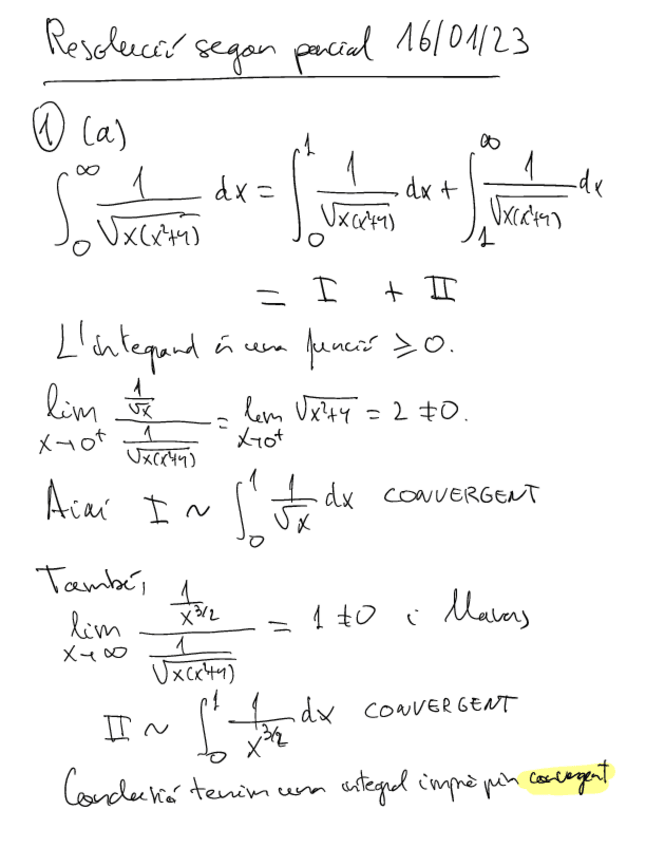 Resolució segon parcial 16/01/23
① (a)
∫₀^∞ 1/√(x(x²+4)) dx = ∫₀¹ 1/√(x(x²+4)) dx + ∫₁^∞ 1/√(x(x²+4)) dx
= I + II
L'integrand és una funció ≥ 0.
lim x→0⁺ (1/√x)/(1/√(x(x²+4))) = lim x→0⁺ √(x²+4) = 2 ≠ 0.
Així I ~ ∫₀¹ 1/√x dx CONVERGENT
També,
lim x→∞ (1/x^(3/2))/(1/√(x(x²+4))) = 1 ≠ 0 i llavors
II ~ ∫₀¹ 1/x^(3/2) dx CONVERGENT
Conclusió tenim una integral impròpia convergent